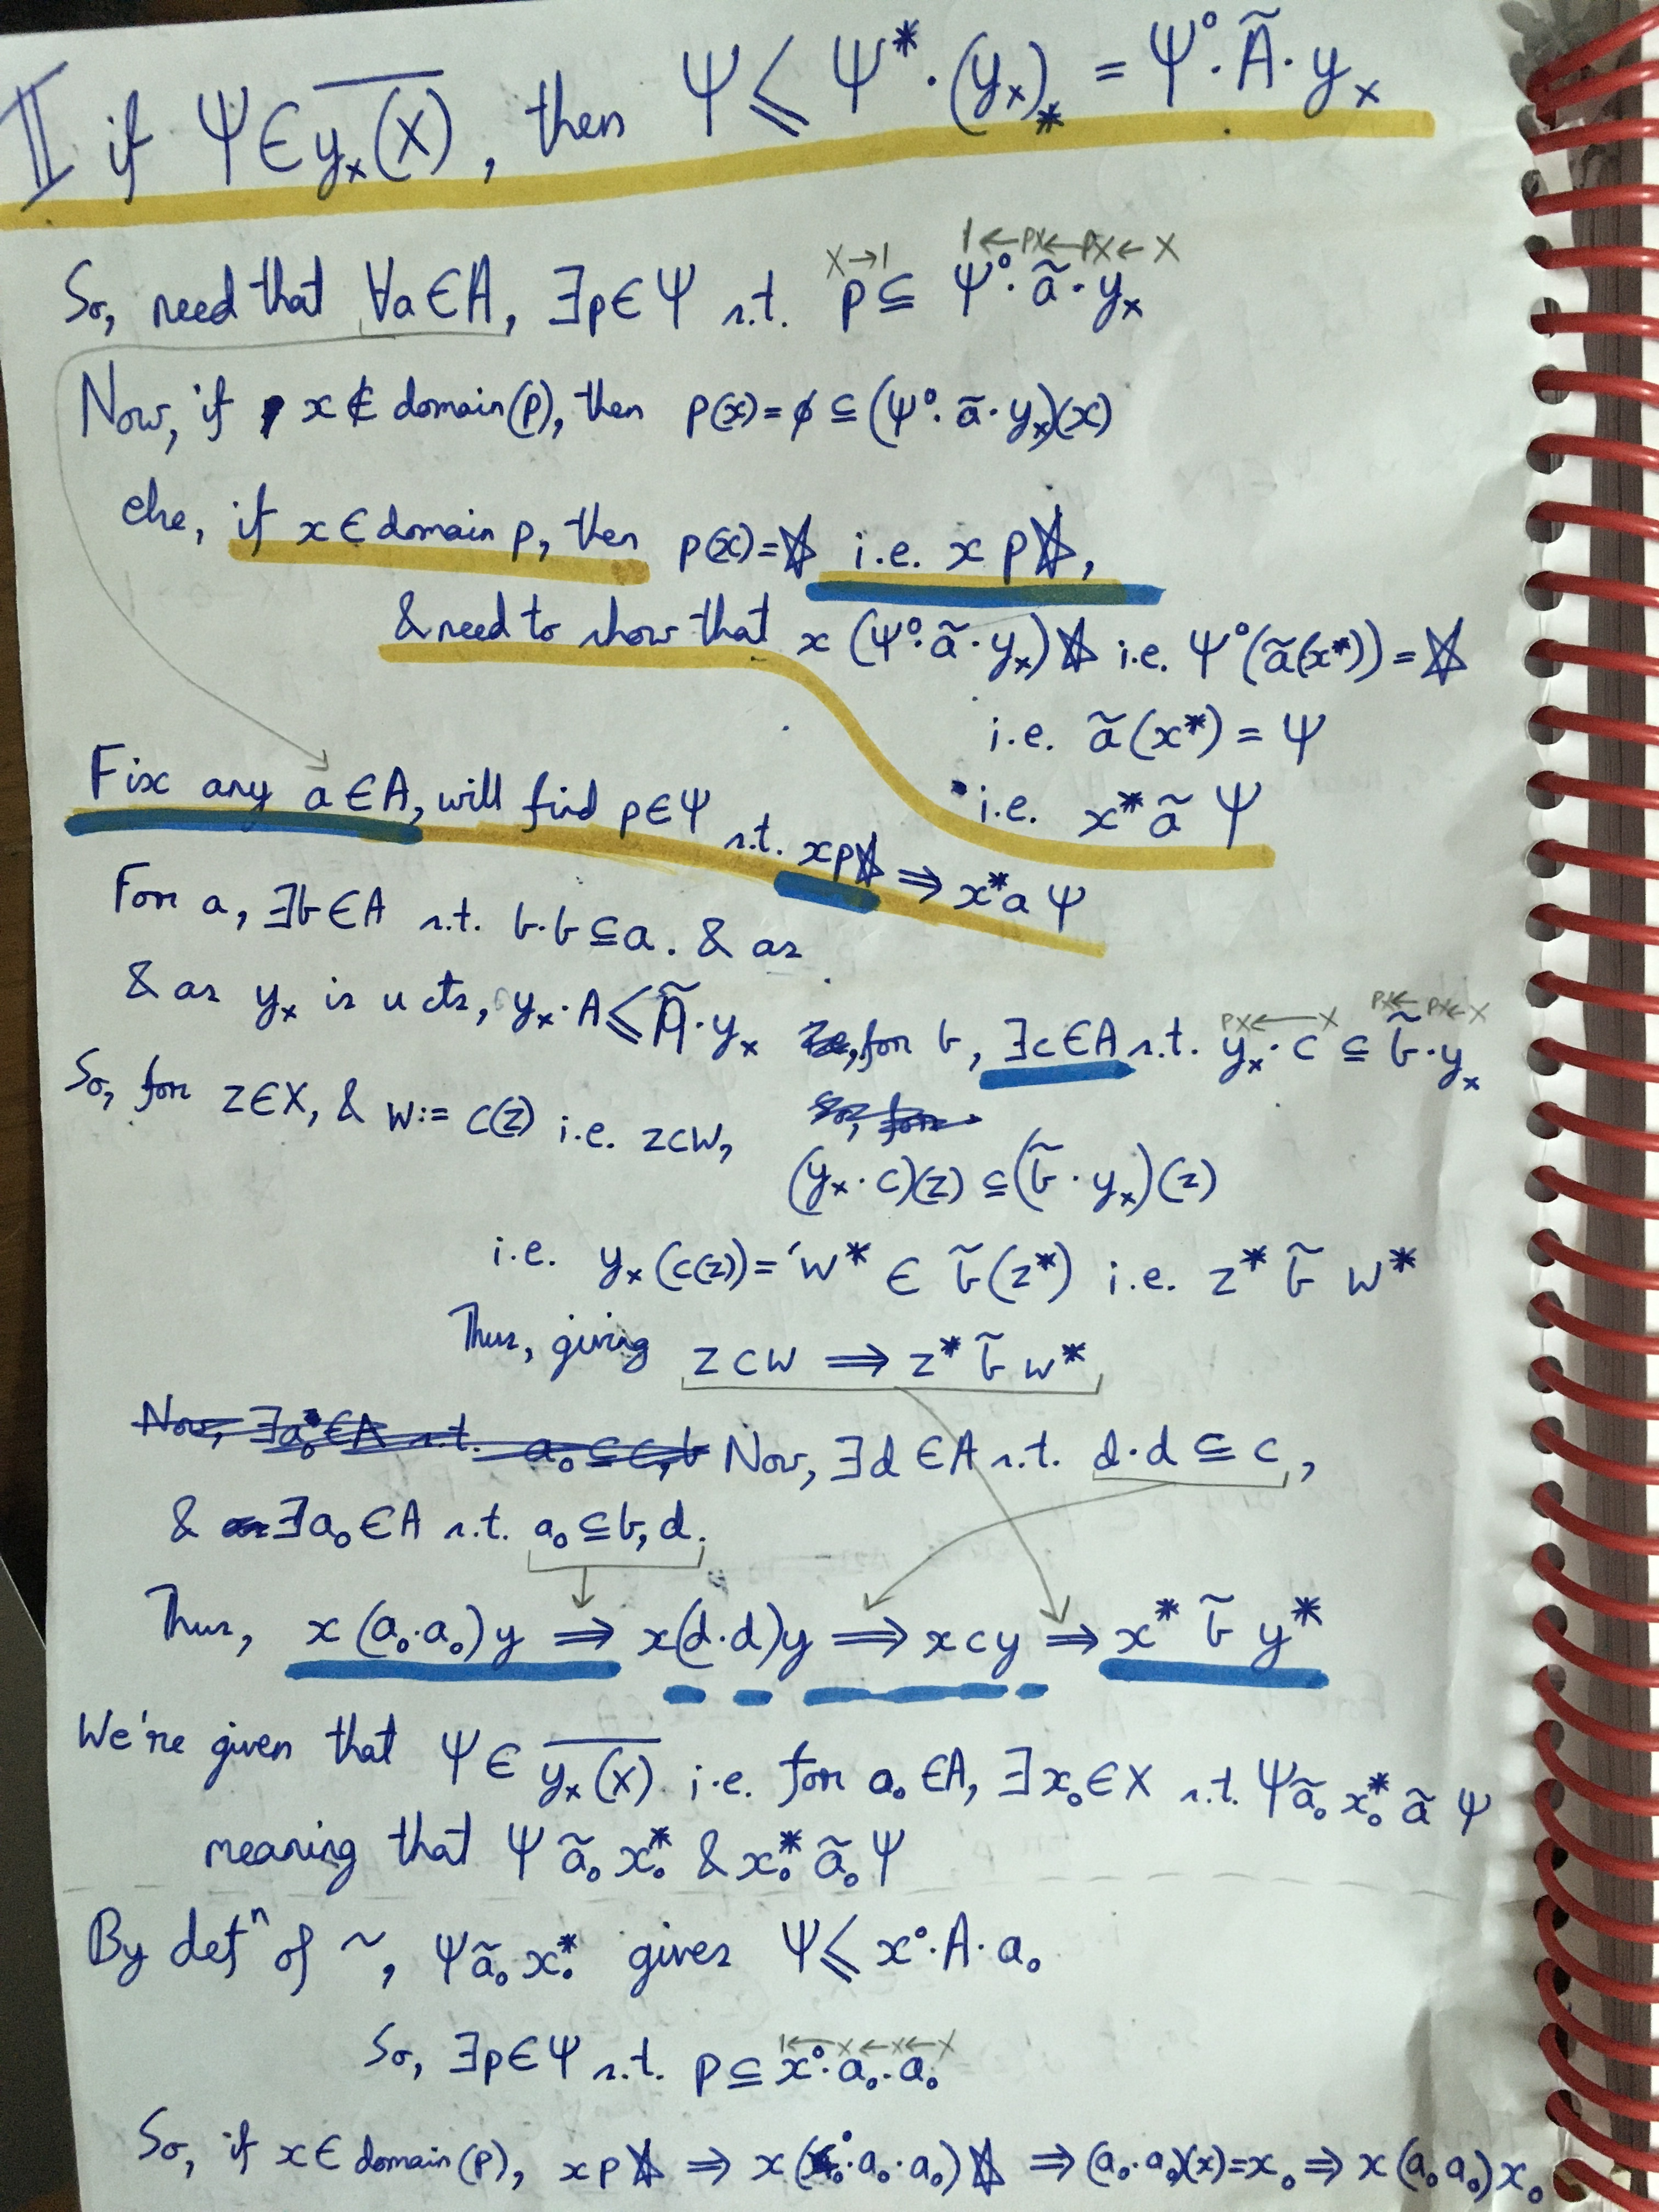 II if Ψ ∈ \overline{y_x(X)}, then Ψ ≤ Ψ^*·(y_x)_* = Ψ°·Ã·y_x
X→1 1←PX←PX←X
So, need that ∀a∈A, ∃p∈Ψ s.t. p ⊆ Ψ°·ã·y_x
Now, if x ∉ domain(p), then p(x) = ϕ ⊆ (Ψ°·ã·y_x)(x)
else, if x ∈ domain p, then p(x)=☆ i.e. x p☆,
& need to show that x (Ψ°·ã·y_x)☆ i.e. Ψ°(ã(x*)) = ☆
i.e. ã(x*) = Ψ
i.e. x* ã Ψ
Fix any a∈A, will find p∈Ψ s.t. xp☆ ⇒ x* a Ψ
For a, ∃b∈A s.t. b·b ⊆ a. & as
& as y_x is u cts, y_x·A ≤ Ã·y_x for b, ∃c∈A s.t. y_x·c ⊆ b̃·y_x
PX←X PX←PX←X
So, for z∈X, & w:= c(z) i.e. zcw,
(y_x·c)(z) ⊆ (b̃·y_x)(z)
i.e. y_x(c(z)) = w* ∈ b̃(z*) i.e. z* b̃ w*
Thus, giving zcw ⇒ z* b̃ w*
Now, ∃d∈A s.t. d·d ⊆ c,
& ∃a₀∈A s.t. a₀ ⊆ b, d.
Thus, x(a₀·a₀)y ⇒ x(d·d)y ⇒ xcy ⇒ x* b̃ y*
We're given that Ψ ∈ \overline{y_x(X)} i.e. for a₀∈A, ∃x₀∈X s.t. Ψ ã₀ x₀* ã Ψ
meaning that Ψ ã₀ x₀* & x₀* ã₀ Ψ
By defⁿ of ~, Ψ ã₀ x₀* gives Ψ ≤ x°·A·a₀
1←X←X←X
So, ∃p∈Ψ s.t. p ⊆ x°·a₀·a₀
So, if x∈domain(p), xp☆ ⇒ x(x₀°·a₀·a₀)☆ ⇒ (a₀·a₀)(x)=x₀ ⇒ x(a₀a₀)x₀